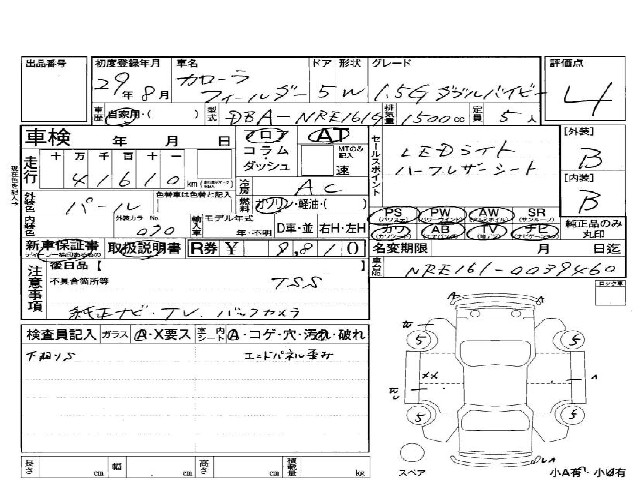 出品番号 初度登録年月 車名 ドア 形状 グレード 評価点
29年8月 カローラ フィールダー 5 W 1.5G ダブルバイビー 4
車歴 自家用・( ) 型式 DBA-NRE161G 排気量 1500cc 定員 5人
車検 年 月 日 フロア AT セールスポイント [外装]
コラム MTのみ記入 LEDライト B
ダッシュ 速 ハーフレザーシート
走行 十万千百十一 41610 km 冷房 AC [内装]
現在色を記入→ 外装色 パール 色替車は色替と記入 燃料 ガソリン・軽油・( ) B
内装色 外装カラーNo 070 輸入車 モデル年式 年・不明 D車・並 右H・左H
PS PW AW SR 純正品のみ丸印
カワ AB TV ナビ
新車保証書 取扱説明書 R券 ¥ 9,810 名変期限 月 日迄
注意事項 後日品【 車台No NRE161-0039460
不具合箇所等 TSS
純正ナビ・TV・バックカメラ
検査員記入 ガラス A・X要ス 室内シート A・コゲ・穴・汚れ・破れ
下廻りS エンドパネル歪み
長さ cm 幅 cm 高さ cm 積載量 kg
A
5 5
XX A
5 5
スペア 小A有・小U有